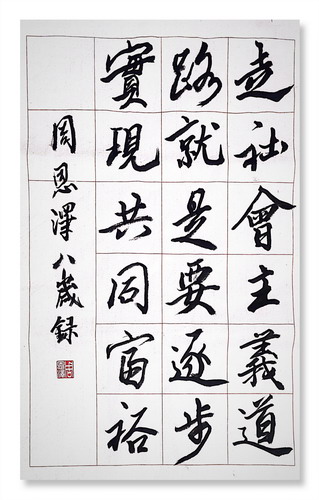 走社會主義道
路就是要逐步
實現共同富裕
周恩澤八歲録